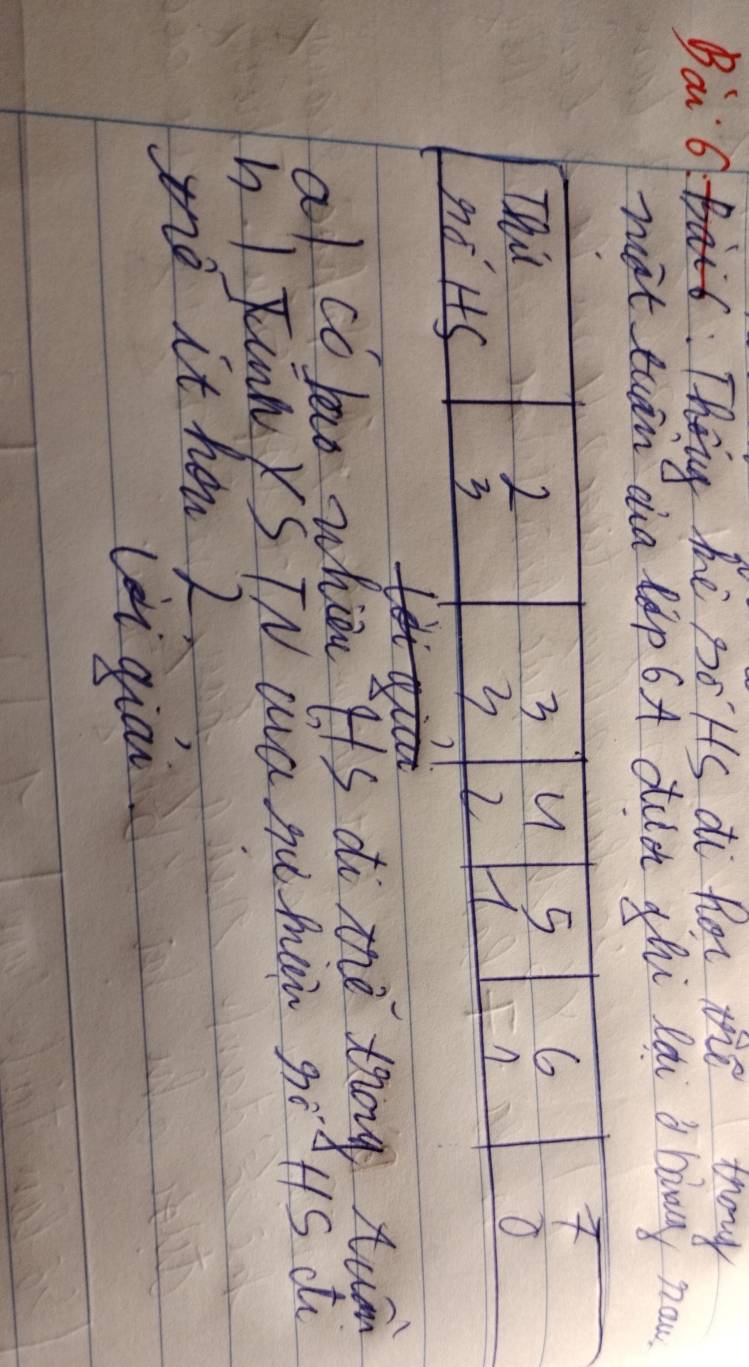 Bài 6. Bài 6: Thống kê số HS đi học trễ trong
một tuần của lớp 6A được ghi lại ở bảng sau.
Thứ 2 3 4 5 6 7
số HS 3 3 2 1 1 0
Lời giải
a) có bao nhiêu HS đi trễ trong tuần?
b) Tính XS TN của sự kiện số HS đi
trễ ít hơn 2
Lời giải.